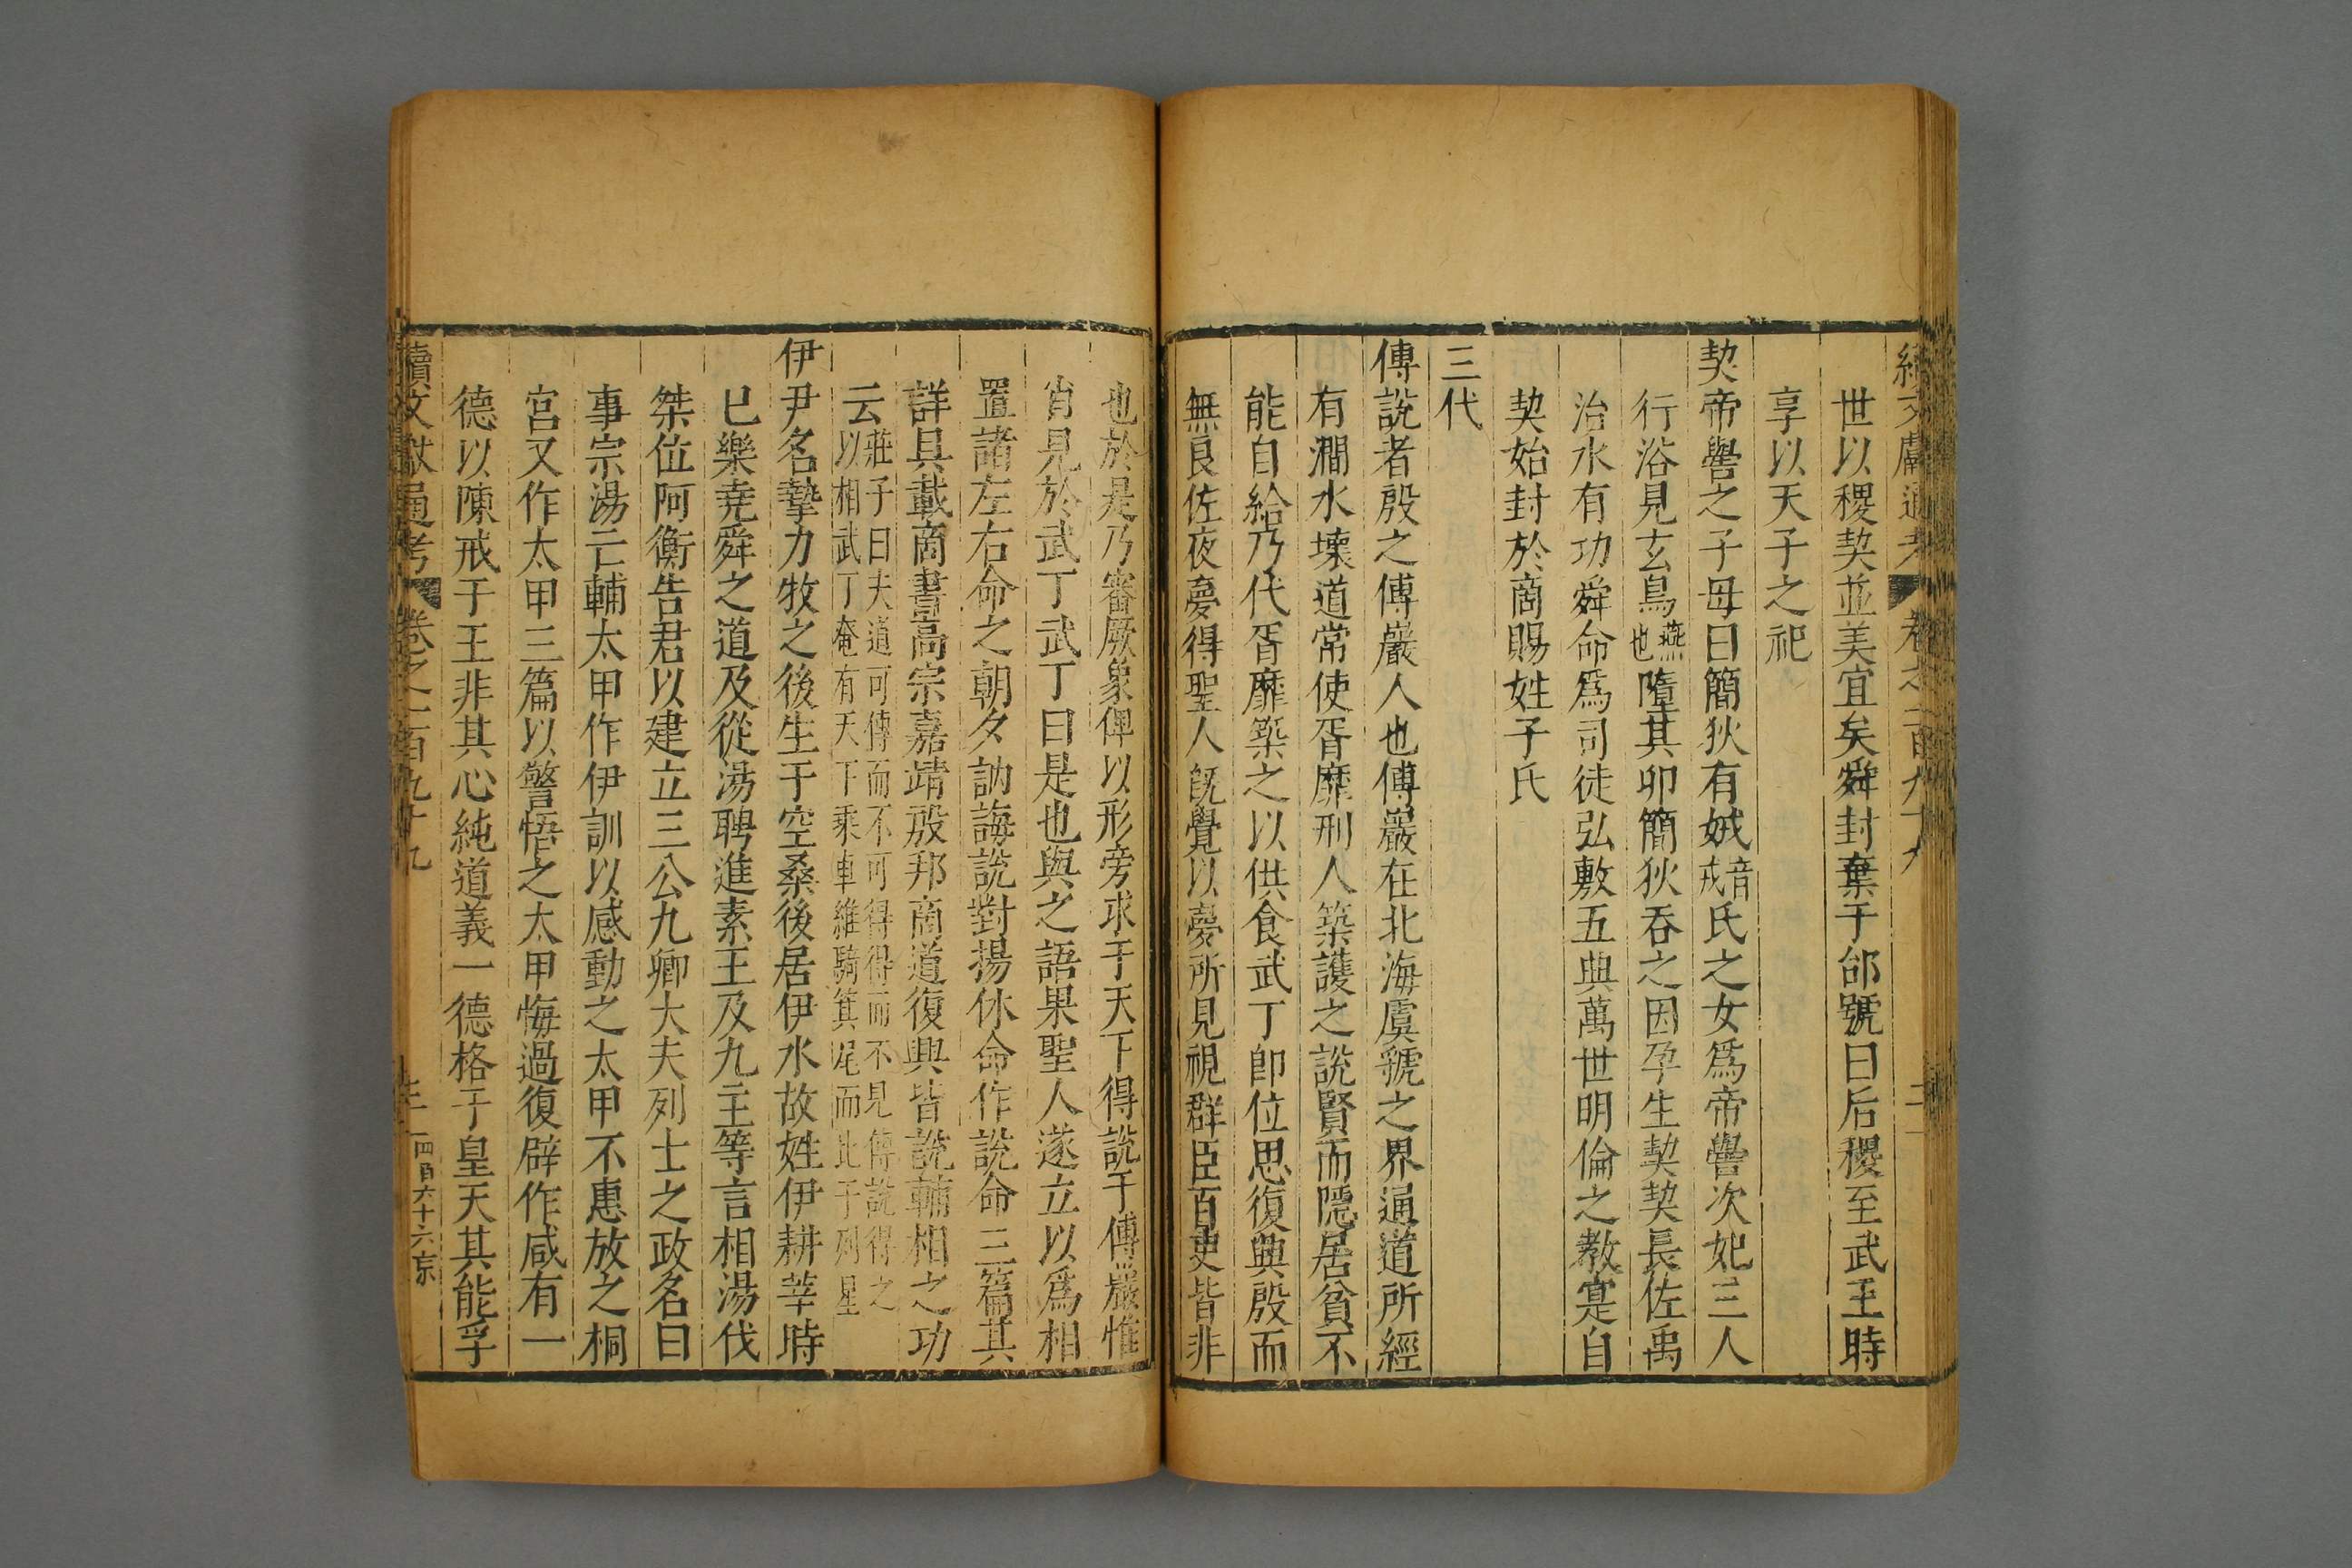 續文獻通考 卷之一百九十九 二
世以稷契並美宜矣舜封棄于邰號曰后稷至武王時
享以天子之祀
契帝嚳之子母曰簡狄有娀音戎氏之女爲帝嚳次妃三人
行浴見玄鳥燕也墮其卵簡狄吞之因孕生契契長佐禹
治水有功舜命爲司徒弘敷五典萬世明倫之教寔自
契始封於商賜姓子氏
三代
傅說者殷之傅巖人也傅巖在北海虞虢之界通道所經
有澗水壞道常使胥靡刑人築護之說賢而隱居貧不
能自給乃代胥靡築之以供食武丁卽位思復興殷而
無良佐夜夢得聖人旣覺以夢所見視群臣百吏皆非
也於是乃審厥象俾以形旁求于天下得說于傅巖惟
肖見於武丁武丁曰是也與之語果聖人遂立以爲相
置諸左右命之朝夕訥誨說對揚休命作說命三篇其
詳具載商書高宗嘉靖殷邦商道復興皆說輔相之功
云莊子曰夫道可傳而不可得得而不見傅說得之
以相武丁奄有天下乘車維騎箕尾而比于列星
伊尹名摯力牧之後生于空桑後居伊水故姓伊耕莘時
已樂堯舜之道及從湯聘進素王及九主等言相湯伐
桀位阿衡告君以建立三公九卿大夫列士之政名曰
事宗湯亡輔太甲作伊訓以感動之太甲不惠放之桐
宮又作太甲三篇以警悟之太甲悔過復辟作咸有一
德以陳戒于王非其心純道義一德格于皇天其能孚
續文獻通考 卷之一百九十九 三 四百六十六